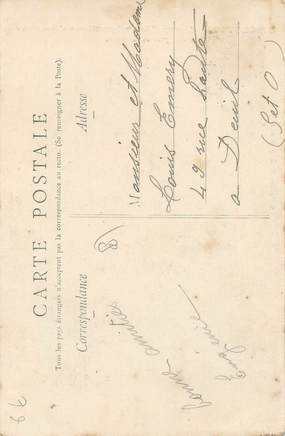 CARTE POSTALE
Tous les pays étrangers n'acceptent pas la correspondance au recto. (Se renseigner à la Poste).
Correspondance
Adresse
Bonnes amitiés
Eugénie
Monsieur et Madame
Louis Emery
49 rue
a Deuil
(S et O)